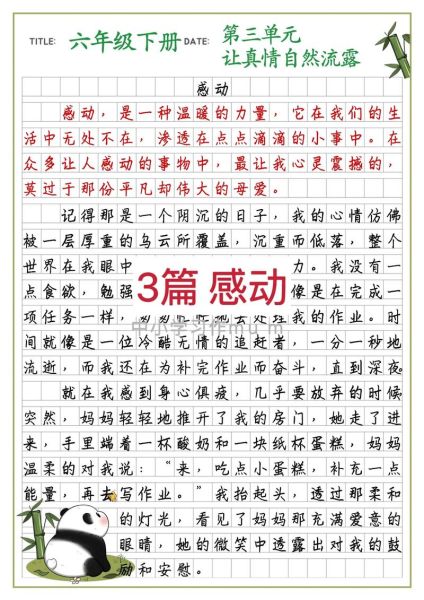 TITLE: 六年级下册 DATE: 第三单元
让真情自然流露
感动
感动，是一种温暖的力量，它在我们的生
活中无处不在，渗透在点点滴滴的小事中。在
众多让人感动的事物中，最让我心灵震撼的，
莫过于那份平凡却伟大的母爱。
记得那是一个阴沉的日子，我的心情仿佛
被一层厚重的乌云所覆盖，沉重而低落，整个
世界在我眼中 力。我没有一
3篇 感动
点食欲，勉强 像是在完成一
项任务一样， 我的作业。时
中小学习作mu m
间就像是一位冷酷无情的追赶者，一分一秒地
流逝，而我还在为补完作业而奋斗，直到深夜。
就在我感到身心俱疲，几乎要放弃的时候，
突然，妈妈轻轻地推开了我的房门，她走了进
来，手里端着一杯酸奶和一块纸杯蛋糕，妈妈
温柔的对我说：“来，吃点小蛋糕，补充一点
能量，再去写作业。”我抬起头，透过那柔和
的灯光，看见了妈妈那充满爱意的
眼睛，她的微笑中透露出对我的鼓
励和安慰。